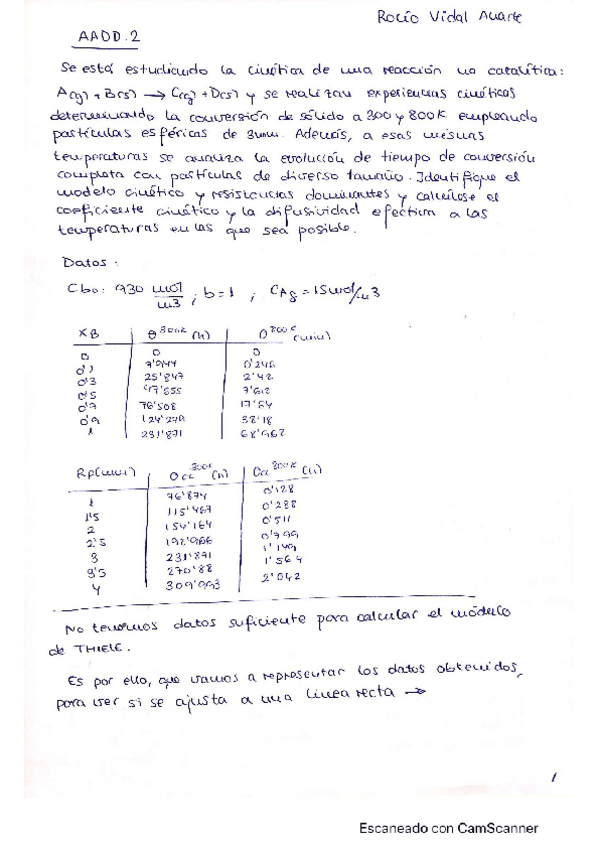 Rocío Vidal Anarte
AADD.2
Se está estudiando la cinética de una reacción no catalítica:
A(g) + B(s) → C(g) + D(s) y se realizan experiencias cinéticas
determinando la conversión de sólido a 300 y 800K empleando
partículas esféricas de 3mm. Además, a esas mismas
temperaturas se analiza la evolución de tiempo de conversión
completa con partículas de diverso tamaño. Identifique el
modelo cinético y resistencias dominantes y calcúlese el
coeficiente cinético y la difusividad efectiva a las
temperaturas en las que sea posible.
Datos:
Cbo: 930 mol/m3 ; b=1 ; CAg = 15 mol/m3
XB θ 300K (h) θ 800K (min)
0 0 0
0'1 7'944 0'246
0'3 25'847 2'42
0'5 47'855 7'612
0'7 76'508 17'64
0'9 124'249 38'18
1 231'871 68'962
Rp(mm) θcc 300K (h) θcc 800K (h)
1 76'874 0'128
1'5 115'467 0'288
2 154'164 0'511
2'5 192'966 0'799
3 231'871 1'149
3'5 270'88 1'564
4 309'993 2'042
No tenemos datos suficiente para calcular el módulo
de THIELE.
Es por ello, que vamos a representar los datos obtenidos,
para ver si se ajusta a una línea recta →
1
Escaneado con CamScanner